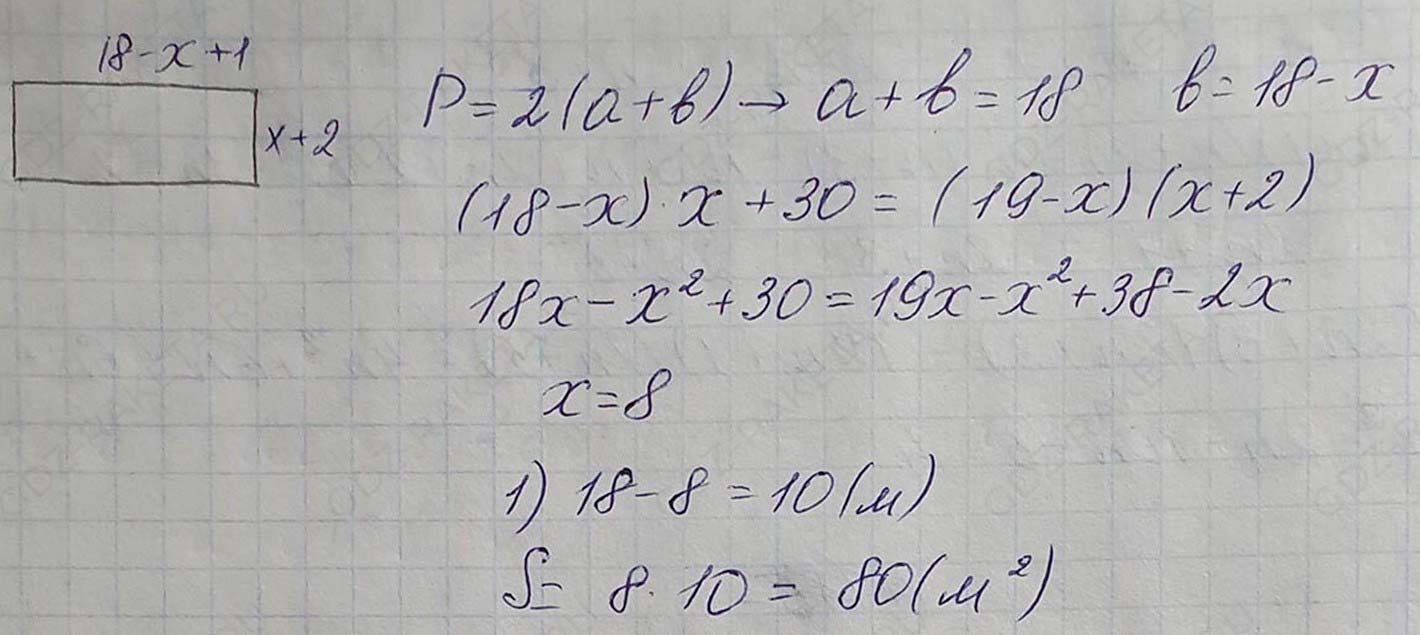 18-x+1
x+2
P=2(a+b)→ a+b=18 b=18-x
(18-x)·x+30=(19-x)(x+2)
18x-x²+30=19x-x²+38-2x
x=8
1) 18-8=10(м)
S= 8·10=80(м²)